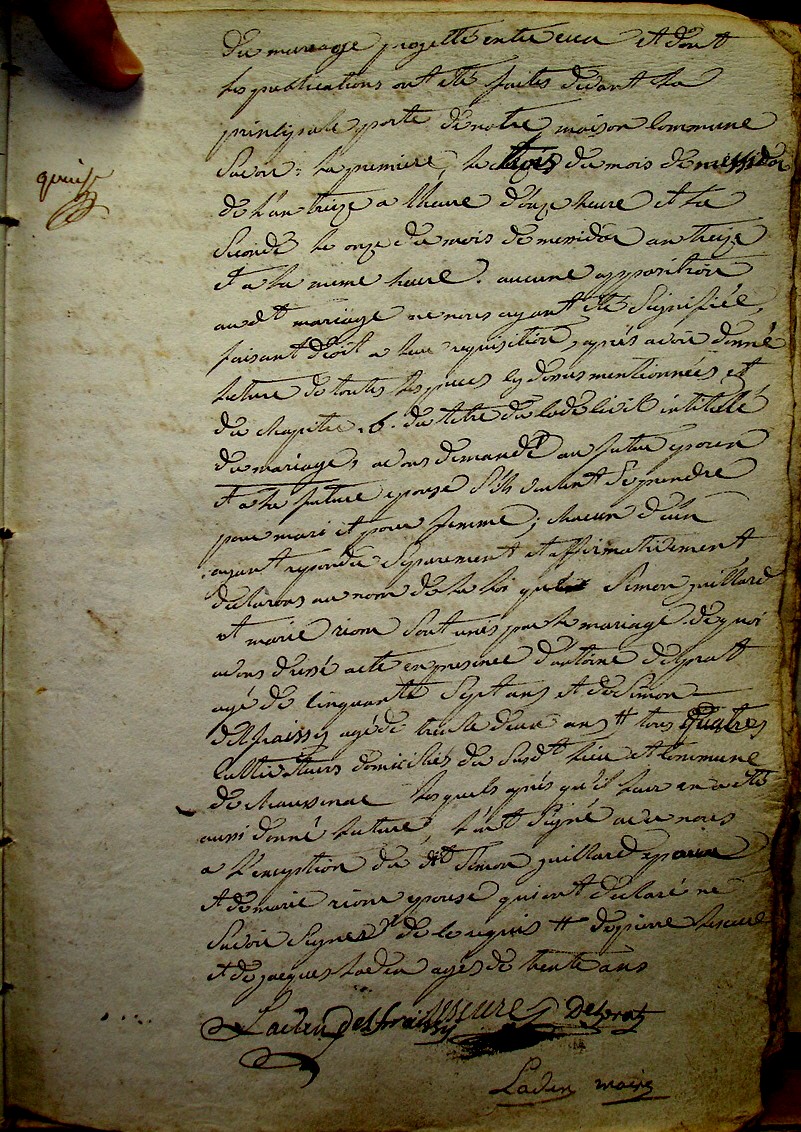 du mariage projetté entre eux et dont
les publications ont été faites devant la
principale porte de notre maison Commune
Savoir: la premiere, le trois du mois de messidor
de l'an treize a lheure d'onze heure et la
Seconde le onze du mois de messidor an treize
et a la meme heure. aucune opposition
audt mariage ne nous ayant été Signifiée,
faisant droit a leur requisition, après avoir donné
lecture de toutes les pieces cy dessus mentionnées et
du chapitre .6. du titre du Code Civil intitullé
du mariage, avons demandé au futur epoux
et a la future epouse S'ils veulent Se prendre
pour mari et pour femme; chacun d'eux
ayant repondu Separement et affirmativement,
declarons au nom de la loi que Simon guillard
et marie rioux Sont unis par le mariage de quoi
avons dressé acte en presence d'antoine delprat
agé de Cinquante Sept ans et de Simon
delfraissy agé de trente deux ans tt tous quatres
Cultivateurs domiciliés du Susdt lieu et Commune
de Mauvenac lesquels après qu'il leur en a été
aussi donné lecture, l'ont Signé avec nous
a l'exception du dt Simon guillard epoux
et de marie rioux epouse qui ont declaré ne
Savoir Signer de ce requis tt de pierre lescure
et de jacques Laden agés de trente ans
Laden delfraissy lescure Delprat
Laden maire